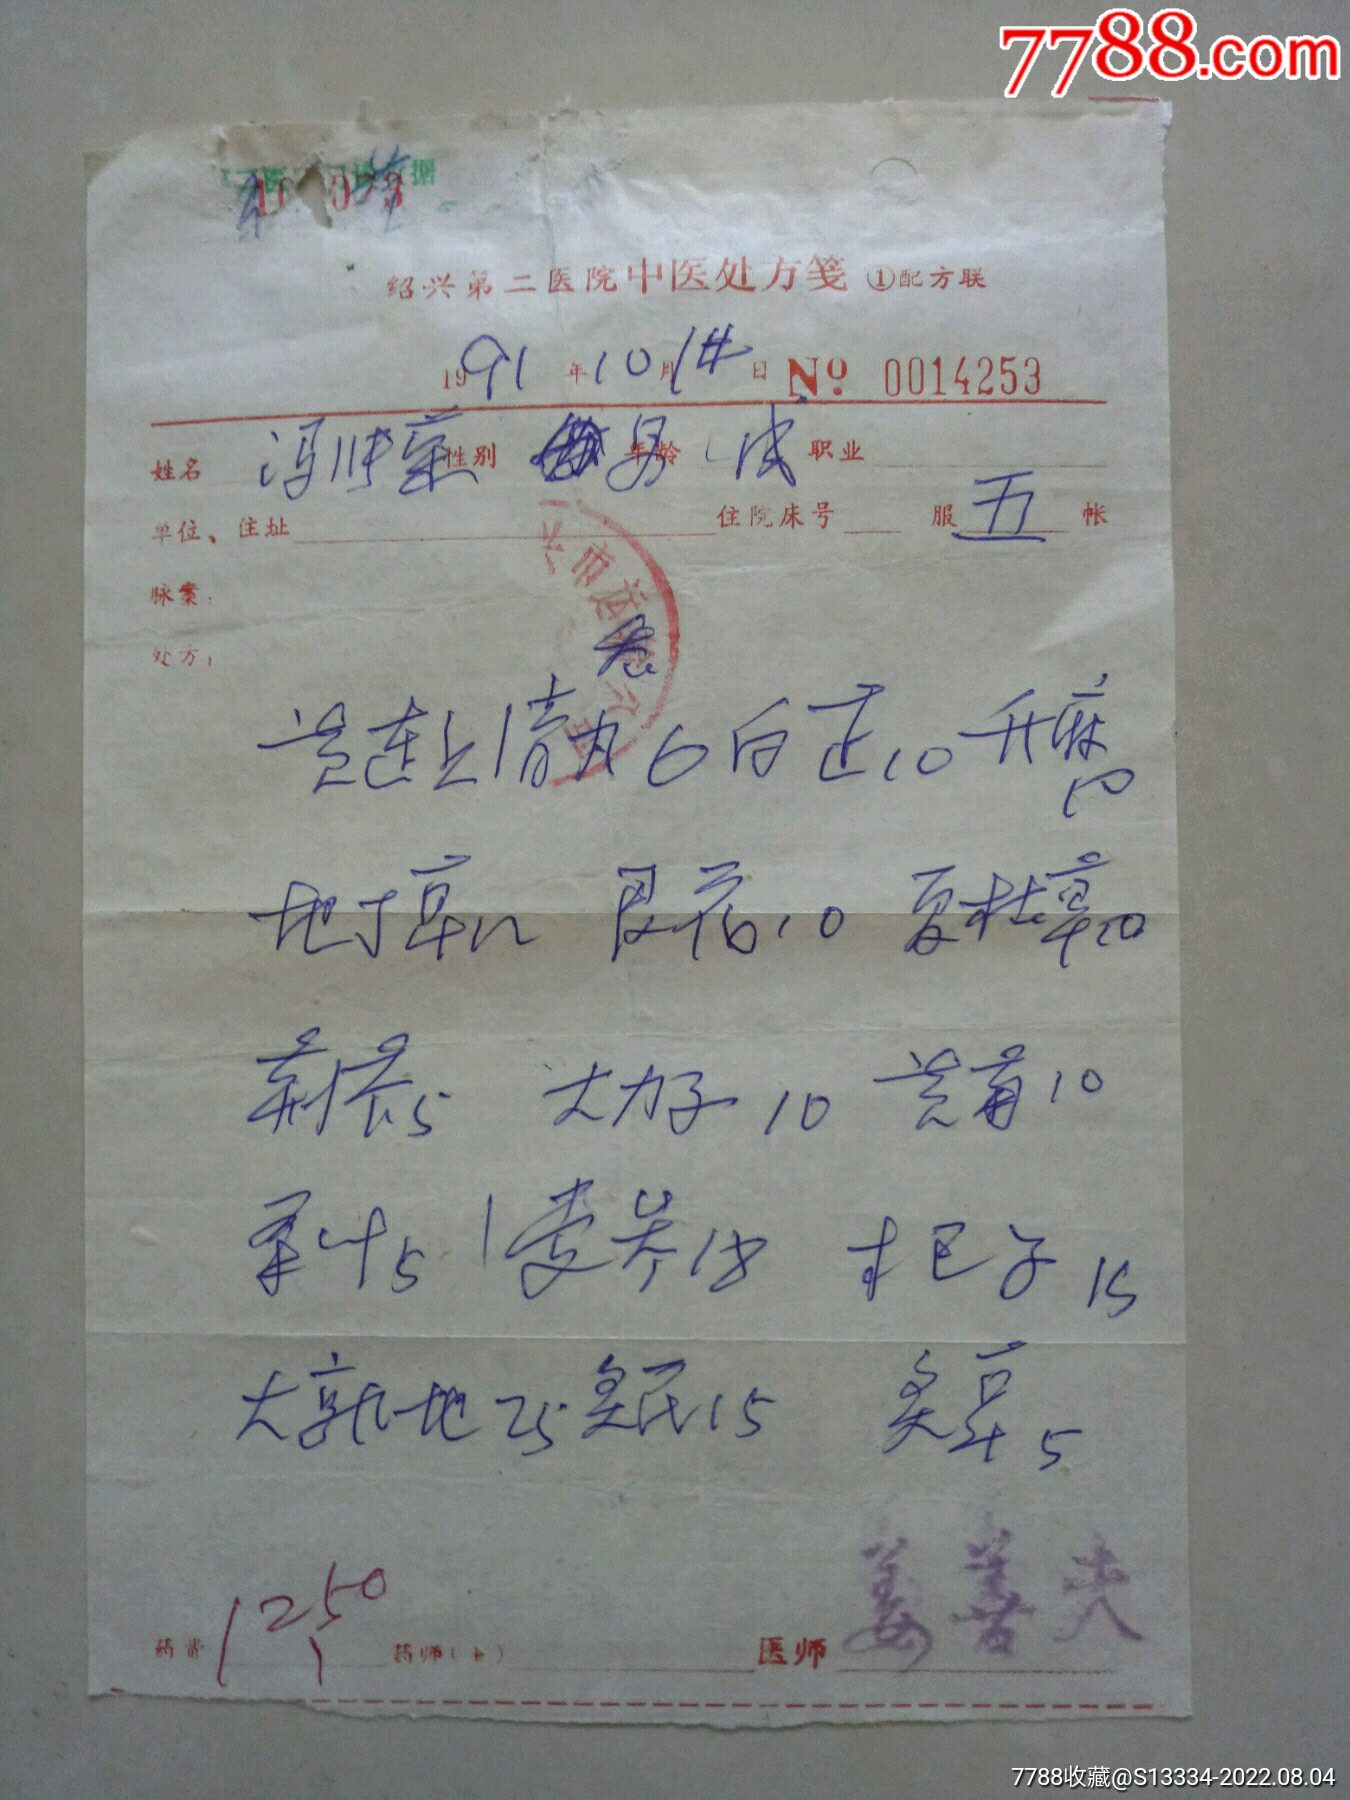 7788.com
绍兴第二医院中医处方笺 ①配方联
1991年10月14日 No 0014253
姓名 冯 性别 男 年龄 成 职业
单位、住址 住院床号 服 五 帖
脉案：
处方：
黄连上清丸6 白芷10 升麻10
地丁草12 艮花10 夏枯草20
荆芥5 大力子10 黄芩10
杞子15
大熟地25 炙芪15 炙草5
药费 12,50 药师(士) 医师 姜善夫
7788收藏@S13334-2022.08.04